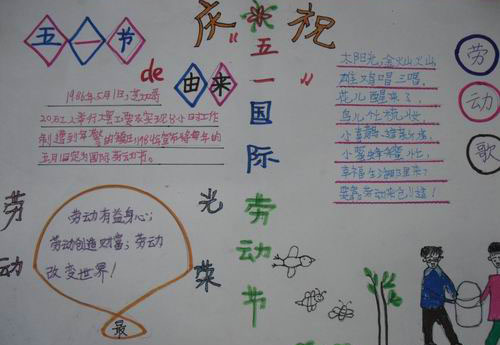 庆祝
"五一国际劳动节"
五一节
de
由来
1986年5月1日,芝加哥
20万工人举行大罢工要求实现8小时工作
制遭到军警的镇压,1989年宣布将每年的
五月1日定为国际劳动节。
劳动
最
光荣
劳动有益身心;
劳动创造财富;劳动
改变世界!
劳动歌
太阳光,金灿灿,
雄鸡唱三唱,
花儿醒来了,
鸟儿忙梳妆,
小喜鹊
小蜜蜂
幸福生活哪里来?
要靠劳动来创造!